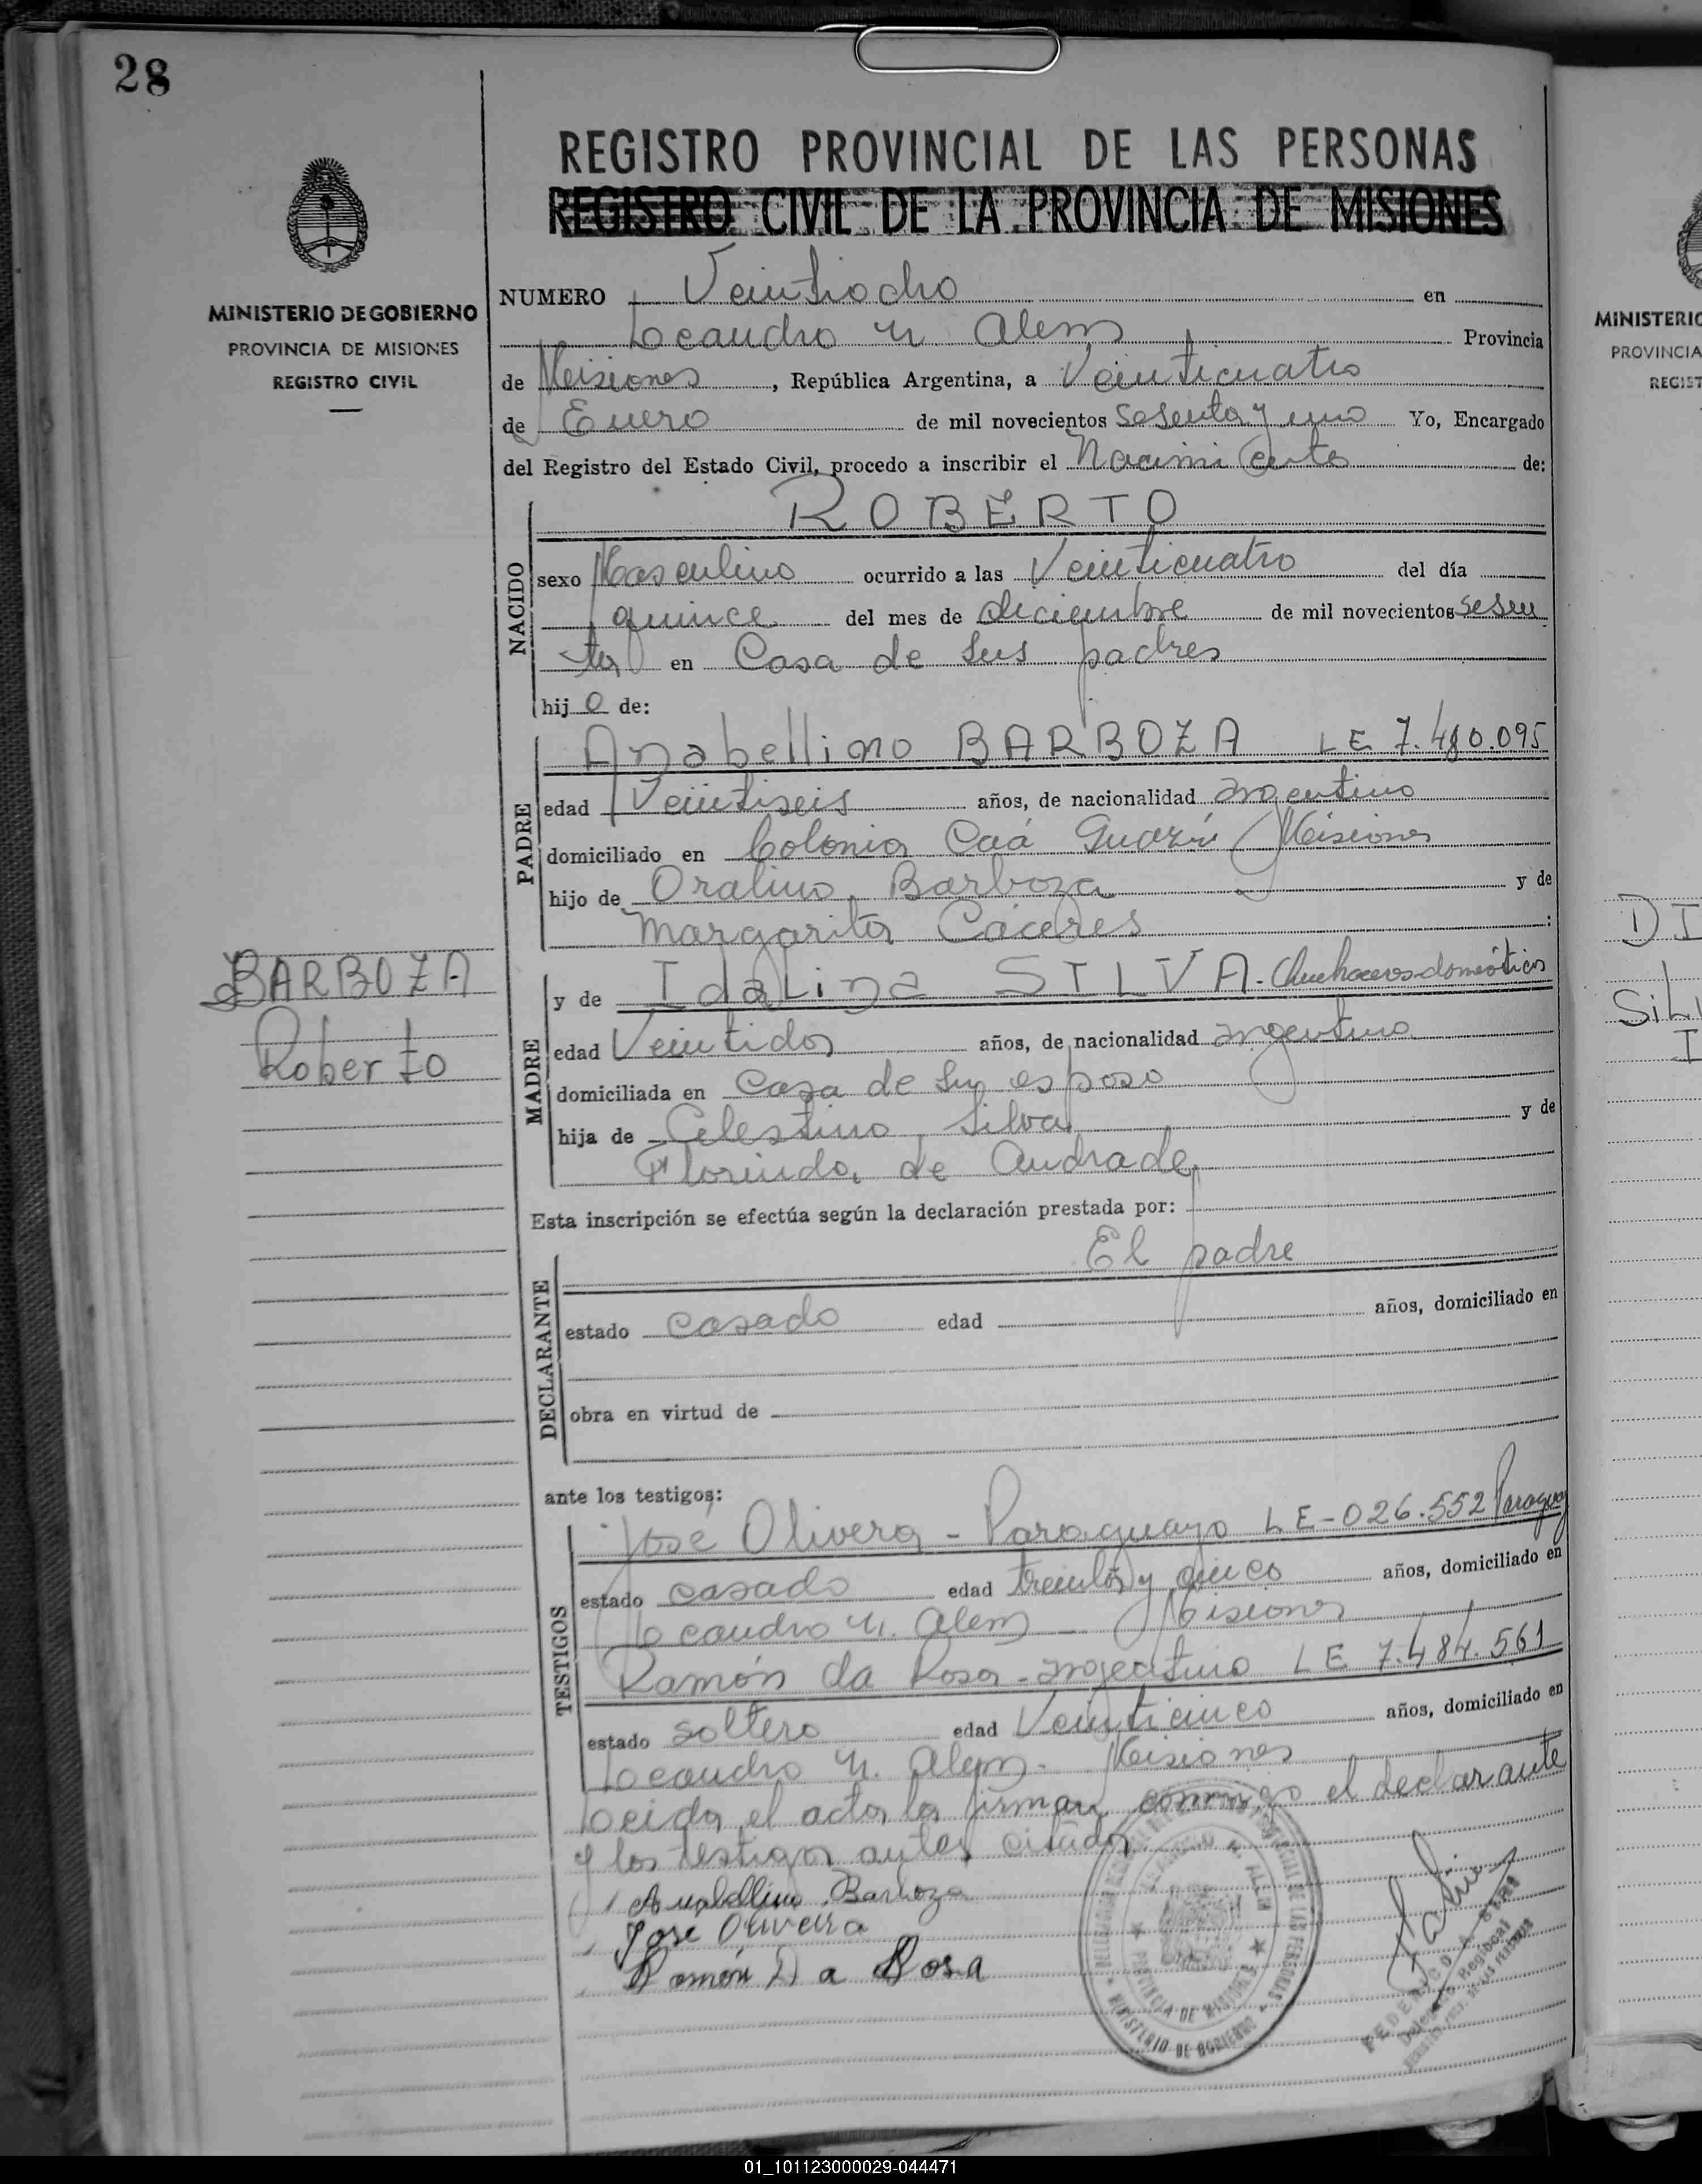 28
MINISTERIO DE GOBIERNO
PROVINCIA DE MISIONES
REGISTRO CIVIL
REGISTRO PROVINCIAL DE LAS PERSONAS
REGISTRO CIVIL DE LA PROVINCIA DE MISIONES
NUMERO Veintiocho en
Leandro N Alem Provincia
de Misiones, República Argentina, a Veinticuatro
de Enero de mil novecientos sesenta y uno Yo, Encargado
del Registro del Estado Civil, procedo a inscribir el Nacimiento de:
NACIDO
ROBERTO
sexo Masculino ocurrido a las Veinticuatro del día
quince del mes de diciembre de mil novecientos sesen
ta en Casa de sus padres
hijo de:
PADRE
Anabellino BARBOZA LE 7.480.095
edad Veintiseis años, de nacionalidad argentino
domiciliado en Colonia Caá Guazú Misiones
hijo de Oralino Barboza y de
Margarita Cáceres :
BARBOZA
Roberto
MADRE
y de Idalina SILVA. Quehaceres domésticos
edad Veintidos años, de nacionalidad argentina
domiciliada en Casa de su esposo
hija de Celestino Silva y de
Florinda de Andrade
Esta inscripción se efectúa según la declaración prestada por:
DECLARANTE
El padre
estado casado edad años, domiciliado en
obra en virtud de
ante los testigos:
TESTIGOS
José Olivera - Paraguayo LE-026.552 Paraguay
estado casado edad treinta y cinco años, domiciliado en
Leandro N. Alem - Misiones
Ramón da Rosa - argentino LE 7.484.561
estado soltero edad Veinticinco años, domiciliado en
Leandro N. Alem. Misiones
Leida el acta la firman conmigo el declarante
y los testigos antes citados
Anabellino Barboza
Jose Oliveira
Ramón Da Rosa
PROVINCIA DE MISIONES
MINISTERIO DE GOBIERNO
MINISTERIO
PROVINCIA
REGIST
DI
SiLV
I
01_101123000029-044471